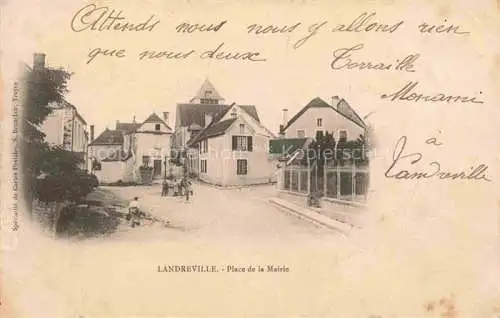 Attends nous nous y allons rien
que nous deux
Terraille
Monami
à
Landreville
LANDREVILLE. - Place de la Mairie.
Spécialité de Cartes Postales
Troyes